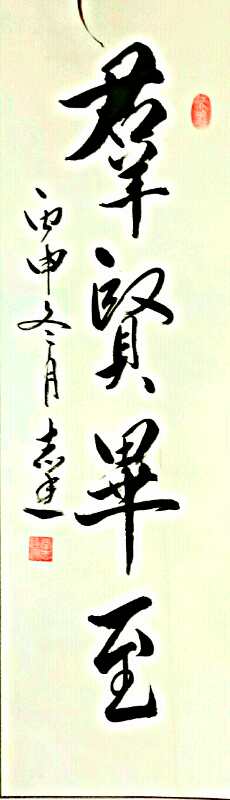 羣賢畢至
丙申冬月志建